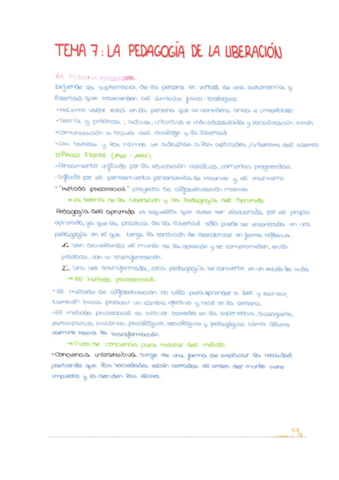 TEMA 7: LA PEDAGOGÍA DE LA LIBERACIÓN
LA PEDAGOGÍA
Defiende la supremacía de la persona en virtud de una autonomía y
libertad que trascienden del ámbito físico-biológico.
•Máximo valor está en la persona que se considera única e irrepetible
•Teoría y práctica: activa, intuitiva e individualizada y socialización común
•Comunicación a través del diálogo y la libertad
•Las tareas y los ritmos se adaptan a las aptitudes/intereses del alumno
PAULO FREIRE
•Pensamiento influido por la educación católica, corrientes progresistas
•Influido por el pensamiento personalista de Mounier y el marxismo
•"Método psicosocial" proyecto de alfabetización masiva
→La teoría de la liberación y la pedagogía del oprimido
Pedagogía del oprimido es aquella que debe ser elaborada por el propio
oprimido, ya que la práctica de la libertad sólo puede ser encontrada en una
pedagogía en el que tenga la condición de descubrirse en forma reflexiva.
1. Van desvelando el mundo de la opresión y se comprometen, en la
práctica, con su transformación
2. Una vez transformada, esta pedagogía se convierte en un estilo de vida
→El método psicosocial
•El método de alfabetización no sólo para aprender a leer y escribir,
también trata producir un cambio efectivo y real en la persona.
•El método psicosocial es activo, basado en la experiencia, dialogante,
participativo, histórico, psicológico, sociológico y pedagógico cómo último
camino hacia la transformación
→Tipos de conciencia para trabajar del método
•Conciencia intransitiva: surge de una forma de explicar la realidad
partiendo que las sociedades están cerradas el orden del mundo viene
impuesto y lo deciden las élites.